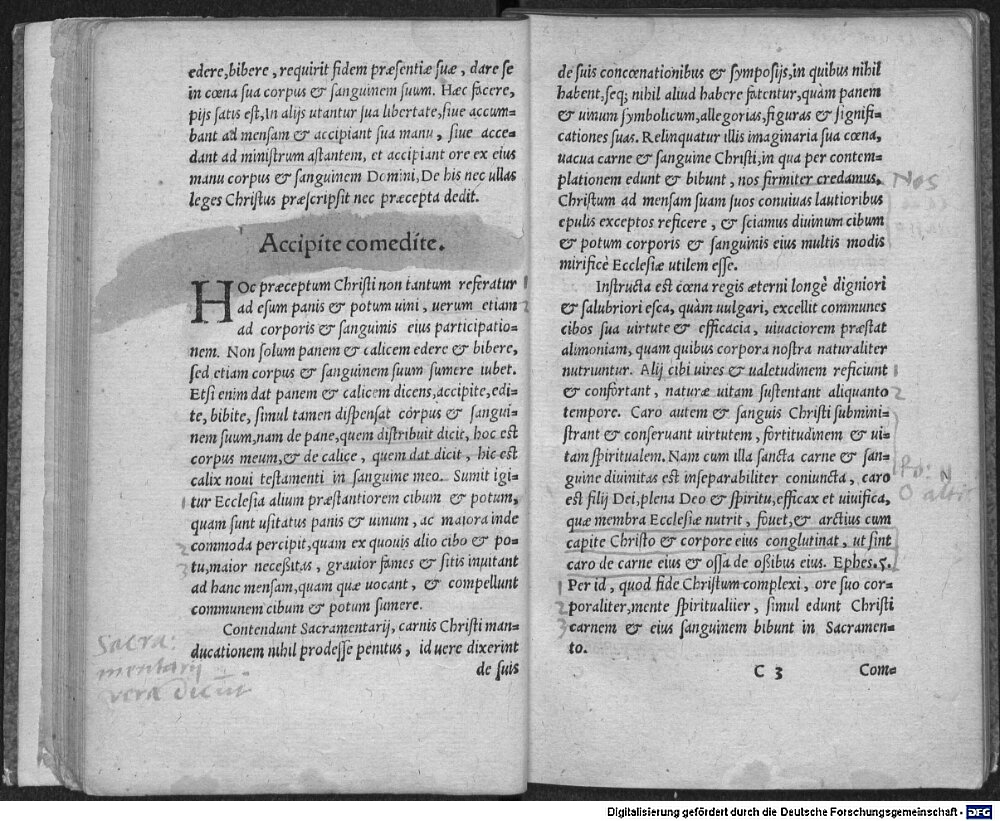 edere,bibere, requirit fidem præsentiæ suæ, dare se
in cœna sua corpus & sanguinem suum. Hæc facere,
pijs satis est,In alijs utantur sua libertate,siue accum-
bant ad mensam & accipiant sua manu, siue acce-
dant ad ministrum astantem, et accipiant ore ex eius
manu corpus & sanguinem Domini,De his nec ullas
leges Christus præscripsit nec præcepta dedit.
Accipite comedite.
HOc præceptum Christi non tantum referatur
ad esum panis & potum uini, uerum etiam
ad corporis & sanguinis eius participatio-
nem. Non solum panem & calicem edere & bibere,
sed etiam corpus & sanguinem suum sumere iubet.
Etsi enim dat panem & calicem dicens,accipite,edi-
te, bibite, simul tamen dispensat corpus & sangui-
nem suum,nam de pane,quem distribuit dicit, hoc est
corpus meum,& de calice, quem dat dicit, hic est
calix noui testamenti in sanguine meo. Sumit igi-
tur Ecclesia alium præstantiorem cibum & potum,
quam sunt usitatus panis & uinum, ac maiora inde
commoda percipit,quam ex quouis alio cibo & po-
tu,maior necessitas, grauior fames & sitis inuitant
ad hanc mensam,quam quæ uocant, & compellunt
communem cibum & potum sumere.
Contendunt Sacramentarij, carnis Christi man-
ducationem nihil prodesse penitus, id uere dixerint
de suis
Sacra:
mentarij
vera dicūt
de suis concœnationibus & symposijs,in quibus nihil
habent,seq; nihil aliud habere fatentur,quàm panem
& uinum symbolicum,allegorias,figuras & signifi-
cationes suas. Relinquatur illis imaginaria sua cœna,
uacua carne & sanguine Christi,in qua per contem-
plationem edunt & bibunt, nos firmiter credamus,
Christum ad mensam suam suos conuiuas lautioribus
epulis exceptos reficere, & sciamus diuinum cibum
& potum corporis & sanguinis eius multis modis
mirificè Ecclesiæ utilem esse.
Instructa est cœna regis æterni longè digniori
& salubriori esca, quàm uulgari, excellit communes
cibos sua uirtute & efficacia, uiuaciorem præstat
alimoniam, quam quibus corpora nostra naturaliter
nutriuntur. Alij cibi uires & ualetudinem reficiunt
& confortant, naturæ uitam sustentant aliquanto
tempore. Caro autem & sanguis Christi submini-
strant & conseruant uirtutem, fortitudinem & ui-
tam spiritualem. Nam cum illa sancta carne & san-
guine diuinitas est inseparabiliter coniuncta, caro
est filij Dei,plena Deo & spiritu,efficax et uiuifica,
quæ membra Ecclesiæ nutrit, fouet,& arctius cum
capite Christo & corpore eius conglutinat, ut sint
caro de carne eius & ossa de ossibus eius. Ephes.5.
Per id, quod fide Christum complexi, ore suo cor-
poraliter,mente spiritualiter, simul edunt Christi
carnem & eius sanguinem bibunt in Sacramen-
to.
C 3 Com-
Nos
Digitalisierung gefördert durch die Deutsche Forschungsgemeinschaft - DFG